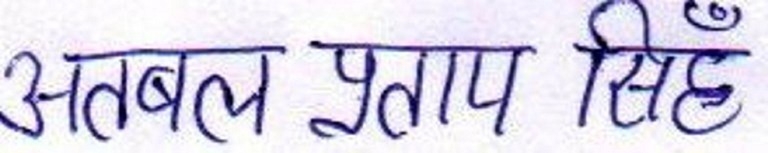 अतबल प्रताप सिहँ